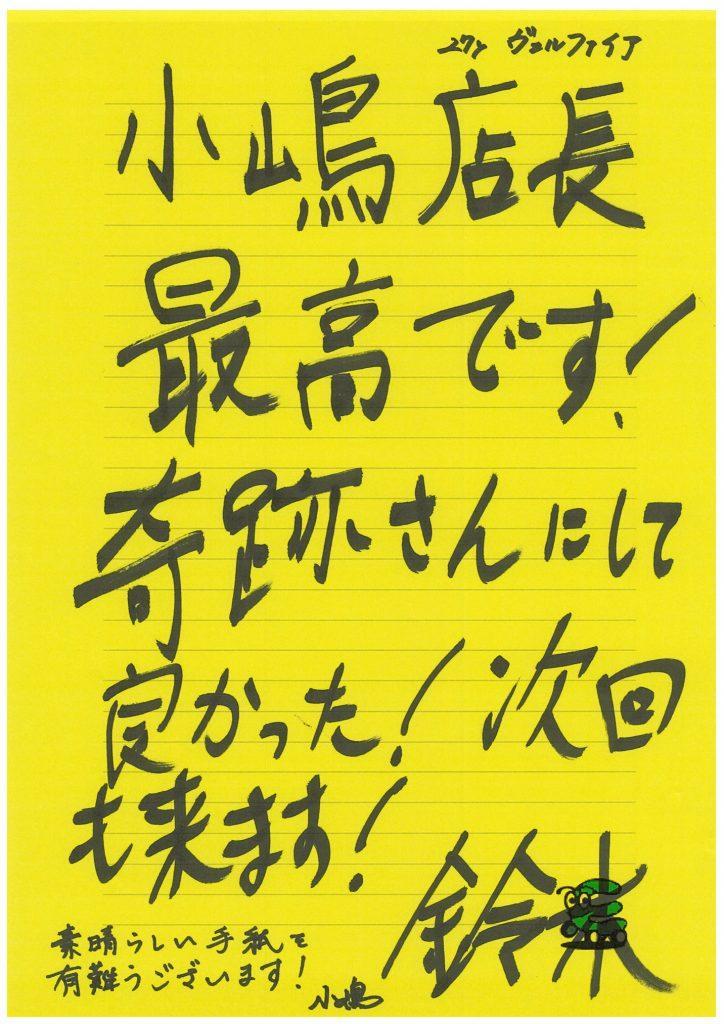 27y ヴェルファイア
小嶋店長
最高です!
奇跡さんにして
良かった!次回
も来ます!
鈴木
素晴らしい手紙を
有難うございます!
小嶋